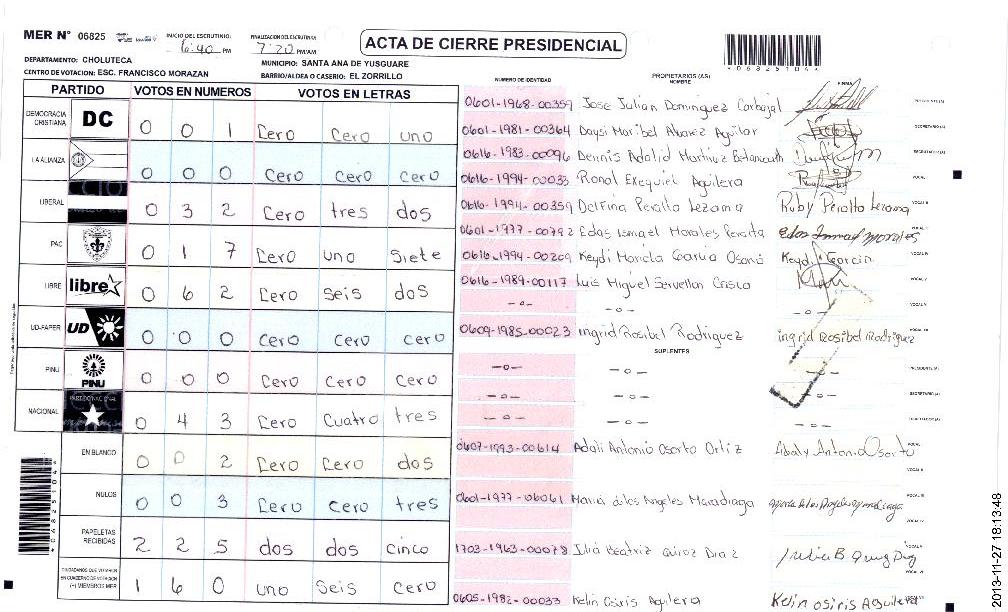 MER N° 06825
INICIO DEL ESCRUTINIO: 6:40 PM
FINALIZACION DEL ESCRUTINIO: 7:20 PM/AM
ACTA DE CIERRE PRESIDENCIAL
DEPARTAMENTO: CHOLUTECA
MUNICIPIO: SANTA ANA DE YUSGUARE
CENTRO DE VOTACION: ESC. FRANCISCO MORAZAN
BARRIO/ALDEA O CASERIO: EL ZORRILLO
PARTIDO VOTOS EN NUMEROS VOTOS EN LETRAS
DEMOCRACIA CRISTIANA DC 0 0 1 Cero Cero uno
LA ALIANZA 0 0 0 Cero Cero Cero
LIBERAL 0 3 2 Cero tres dos
PAC 0 1 7 Cero uno Siete
LIBRE libre 0 6 2 Cero Seis dos
UD-FAPER UD 0 0 0 Cero Cero Cero
PINU PINU 0 0 0 Cero Cero Cero
NACIONAL 0 4 3 Cero Cuatro tres
EN BLANCO 0 0 2 Cero Cero dos
NULOS 0 0 3 Cero Cero tres
PAPELETAS RECIBIDAS 2 2 5 dos dos cinco
CIUDADANOS QUE VOTARON
EN CUADERNO DE VOTACION
(+) MIEMBROS MER 1 6 0 uno Seis Cero
NUMERO DE IDENTIDAD PROPIETARIOS (AS) NOMBRE FIRMA
0601-1968-00359 Jose Julian Dominguez Carbajal
0601-1981-00364 Daysi Maribel Alvarez Aguilar
0616-1983-00096 Dennis Adalid Martinez Betancouth
0616-1994-00033 Ronal Exequiel Aguilera
0616-1994-00359 Delfina Peralta Lezama Ruby Peralta Lezama
0601-1977-00792 Edas Ismael Morales Peralta
0616-1994-00209 Keydi Mariela Garcia Osorio Keydi Garcia
0616-1989-00117 Luis Miguel Servellon
-o- -o- -o-
0609-1985-00023 Ingrid Rosibel Rodriguez ingrid Rosibel Rodriguez
SUPLENTES
-o- -o- -o-
-o- -o- -o-
-o- -o- -o-
0607-1993-00614 Adali Antonio Osorto Ortiz Adaly Antonio Osorto
0601-1977-06061 Maria de los Angeles Maradiaga
1703-1963-00078 Quiroz Diaz
0605-1982-00033 Kelin Osiris Aguilera Kelin osiris Aguilera
2013-11-27 18:13:48